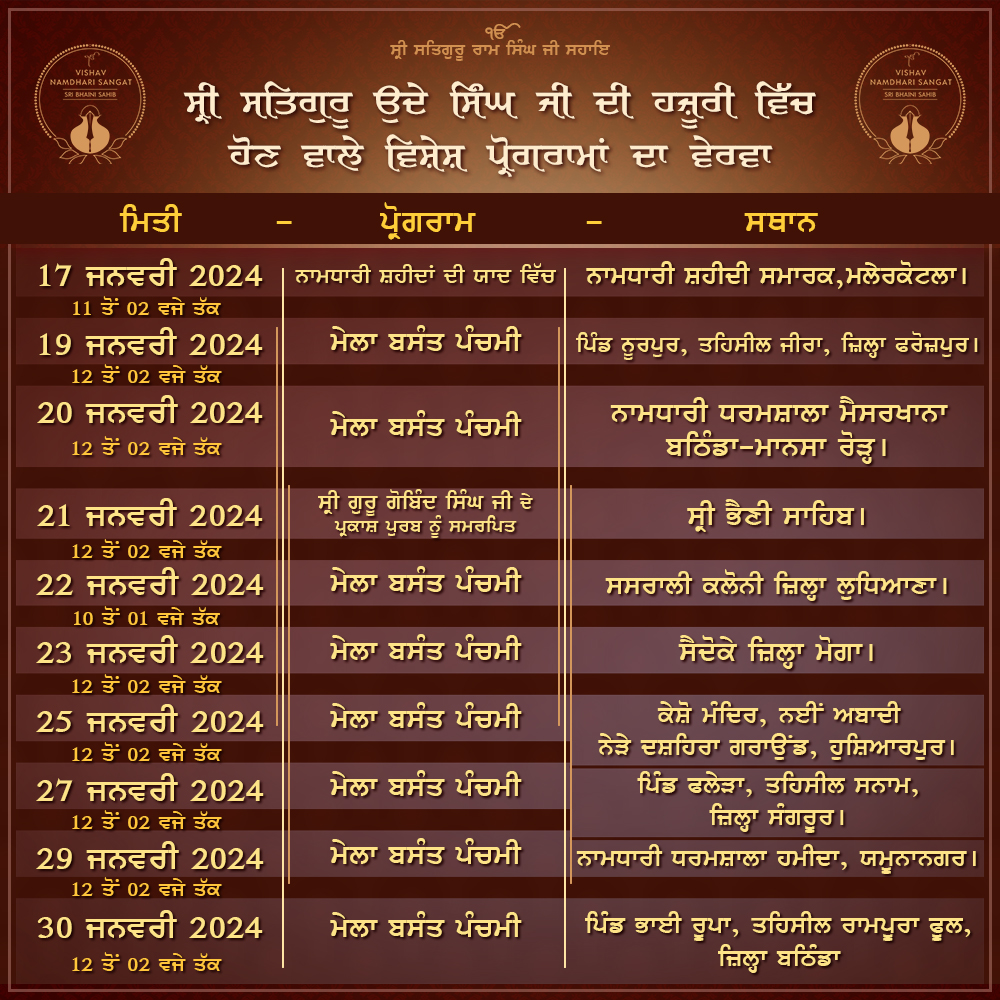 ੴ
ਸ੍ਰੀ ਸਤਿਗੁਰੂ ਰਾਮ ਸਿੰਘ ਜੀ ਸਹਾਇ
VISHAV
NAMDHARI SANGAT
SRI BHAINI SAHIB
VISHAV
NAMDHARI SANGAT
SRI BHAINI SAHIB
ਸ੍ਰੀ ਸਤਿਗੁਰੂ ਉਦੇ ਸਿੰਘ ਜੀ ਦੀ ਹਜ਼ੂਰੀ ਵਿੱਚ
ਹੋਣ ਵਾਲੇ ਵਿਸ਼ੇਸ਼ ਪ੍ਰੋਗਰਾਮਾਂ ਦਾ ਵੇਰਵਾ
ਮਿਤੀ – ਪ੍ਰੋਗਰਾਮ – ਸਥਾਨ
17 ਜਨਵਰੀ 2024 ਨਾਮਧਾਰੀ ਸ਼ਹੀਦਾਂ ਦੀ ਯਾਦ ਵਿੱਚ ਨਾਮਧਾਰੀ ਸ਼ਹੀਦੀ ਸਮਾਰਕ,ਮਲੇਰਕੋਟਲਾ।
11 ਤੋਂ 02 ਵਜੇ ਤੱਕ
19 ਜਨਵਰੀ 2024 ਮੇਲਾ ਬਸੰਤ ਪੰਚਮੀ ਪਿੰਡ ਨੂਰਪੁਰ, ਤਹਿਸੀਲ ਜੀਰਾ, ਜ਼ਿਲ੍ਹਾ ਫਰੋਜ਼ਪੁਰ।
12 ਤੋਂ 02 ਵਜੇ ਤੱਕ
20 ਜਨਵਰੀ 2024 ਮੇਲਾ ਬਸੰਤ ਪੰਚਮੀ ਨਾਮਧਾਰੀ ਧਰਮਸ਼ਾਲਾ ਮੈਸਰਖਾਨਾ
12 ਤੋਂ 02 ਵਜੇ ਤੱਕ ਬਠਿੰਡਾ-ਮਾਨਸਾ ਰੋੜ੍ਹ।
ਸ੍ਰੀ ਗੁਰੂ ਗੋਬਿੰਦ ਸਿੰਘ ਜੀ ਦੇ
21 ਜਨਵਰੀ 2024 ਪ੍ਰਕਾਸ਼ ਪੁਰਬ ਨੂੰ ਸਮਰਪਿਤ ਸ੍ਰੀ ਭੈਣੀ ਸਾਹਿਬ।
12 ਤੋਂ 02 ਵਜੇ ਤੱਕ
22 ਜਨਵਰੀ 2024 ਮੇਲਾ ਬਸੰਤ ਪੰਚਮੀ ਸਸਰਾਲੀ ਕਲੋਨੀ ਜ਼ਿਲ੍ਹਾ ਲੁਧਿਆਣਾ।
10 ਤੋਂ 01 ਵਜੇ ਤੱਕ
23 ਜਨਵਰੀ 2024 ਮੇਲਾ ਬਸੰਤ ਪੰਚਮੀ ਸੈਦੋਕੇ ਜ਼ਿਲ੍ਹਾ ਮੋਗਾ।
12 ਤੋਂ 02 ਵਜੇ ਤੱਕ
25 ਜਨਵਰੀ 2024 ਮੇਲਾ ਬਸੰਤ ਪੰਚਮੀ ਕੇਸ਼ੋ ਮੰਦਿਰ, ਨਈਂ ਅਬਾਦੀ
12 ਤੋਂ 02 ਵਜੇ ਤੱਕ ਨੇੜੇ ਦਸ਼ਹਿਰਾ ਗਰਾਉਂਡ, ਹੁਸ਼ਿਆਰਪੁਰ।
27 ਜਨਵਰੀ 2024 ਮੇਲਾ ਬਸੰਤ ਪੰਚਮੀ ਪਿੰਡ ਫਲੇੜਾ, ਤਹਿਸੀਲ ਸਨਾਮ,
12 ਤੋਂ 02 ਵਜੇ ਤੱਕ ਜ਼ਿਲ੍ਹਾ ਸੰਗਰੂਰ।
29 ਜਨਵਰੀ 2024 ਮੇਲਾ ਬਸੰਤ ਪੰਚਮੀ ਨਾਮਧਾਰੀ ਧਰਮਸ਼ਾਲਾ ਹਮੀਦਾ, ਯਮੂਨਾਨਗਰ।
12 ਤੋਂ 02 ਵਜੇ ਤੱਕ
30 ਜਨਵਰੀ 2024 ਮੇਲਾ ਬਸੰਤ ਪੰਚਮੀ ਪਿੰਡ ਭਾਈ ਰੂਪਾ, ਤਹਿਸੀਲ ਰਾਮਪੂਰਾ ਫੂਲ,
12 ਤੋਂ 02 ਵਜੇ ਤੱਕ ਜ਼ਿਲ੍ਹਾ ਬਠਿੰਡਾ